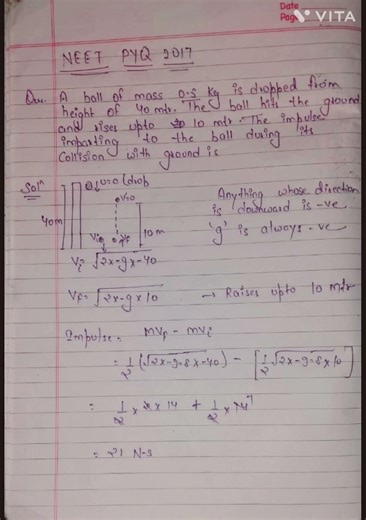 Date
Page
VITA
NEET PYQ 2017
Que. A ball of mass 0.5 kg is dropped from
height of 40 mtr. The ball hits the ground
and rises upto 10 mtr. The impulse
imparting to the ball during its
Collision with ground is
Solⁿ
u=0 (drop
40m
V=0
10m
Vi
Vf
Anything whose direction
is downward is -ve
'g' is always -ve
Vi = √2x-gx-40
Vf = √2x-gx10 → Raises upto 10 mtr
Impulse = MVf - MVi
= 1/2 (√2x-9.8x-40) - [1/2 √2x-9.8x10]
= 1/2 x 2 x 14 + 1/2 x 14
= 21 N-s